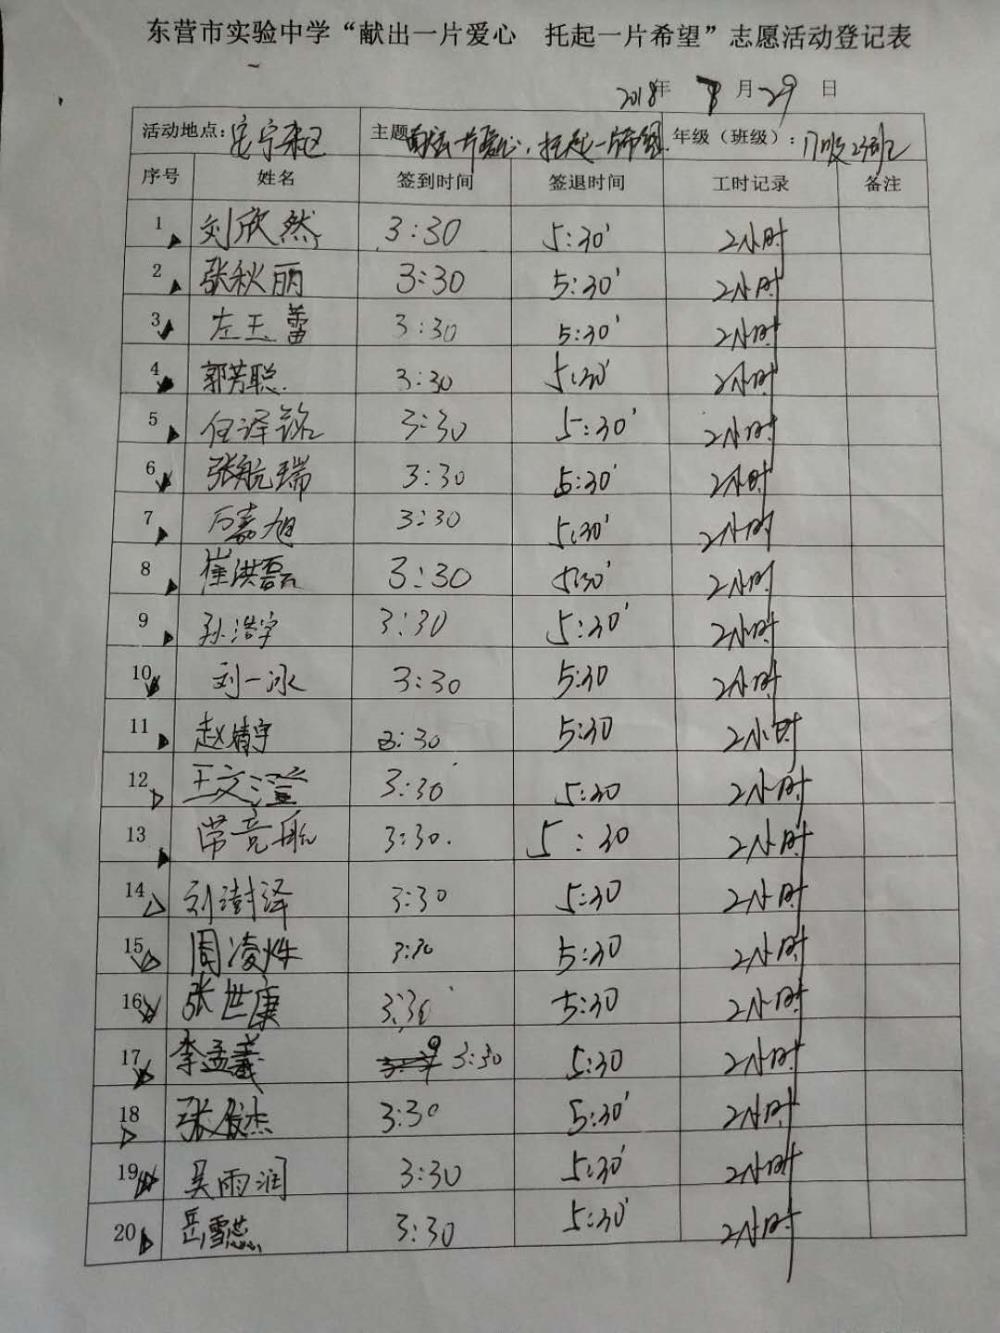 东营市实验中学“献出一片爱心 托起一片希望”志愿活动登记表
2018年 7月29日
活动地点: 主题 献出一片爱心，托起一片希望. 年级（班级）: 17级23班
序号 姓名 签到时间 签退时间 工时记录 备注
1 刘欣然 3:30 5:30' 2小时
2 张秋丽 3:30 5:30' 2小时
3 左王蕾 3:30 5:30' 2小时
4 郭芳聪 3:30 5:30' 2小时
5 任泽铭 3:30 5:30' 2小时
6 张航瑞 3:30 5:30' 2小时
7 万嘉旭 3:30 5:30' 2小时
8 崔洪磊 3:30 5:30' 2小时
9 孙浩宇 3:30 5:30' 2小时
10 刘一冰 3:30 5:30 2小时
11 赵婧宇 3:30 5:30 2小时
12 王文滢 3:30 5:30 2小时
13 常竞航 3:30. 5:30 2小时
14 刘澍泽 3:30 5:30 2小时
15 周凌烨 3:30 5:30 2小时
16 张世康 3:30 5:30 2小时
17 李孟羲 3:30 5:30 2小时
18 张俊杰 3:30 5:30' 2小时
19 吴雨润 3:30 5:30' 2小时
20 岳雪蕊 3:30 5:30' 2小时